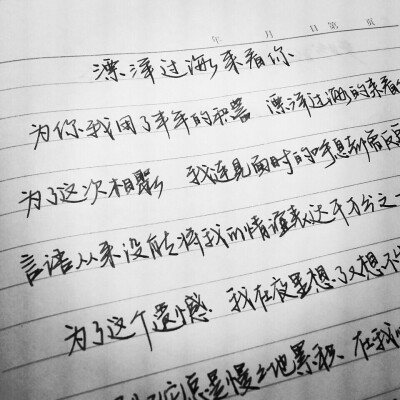 年 月 日 第 页
漂洋过海来看你
为你我用了半年的积蓄 漂洋过海的来看
为了这次相聚 我连见面时的呼吸都
言语从来没能将我的情谊表达千万分之
为了这个遗憾 我在夜里想了又想不
总是慢慢地累积 在我